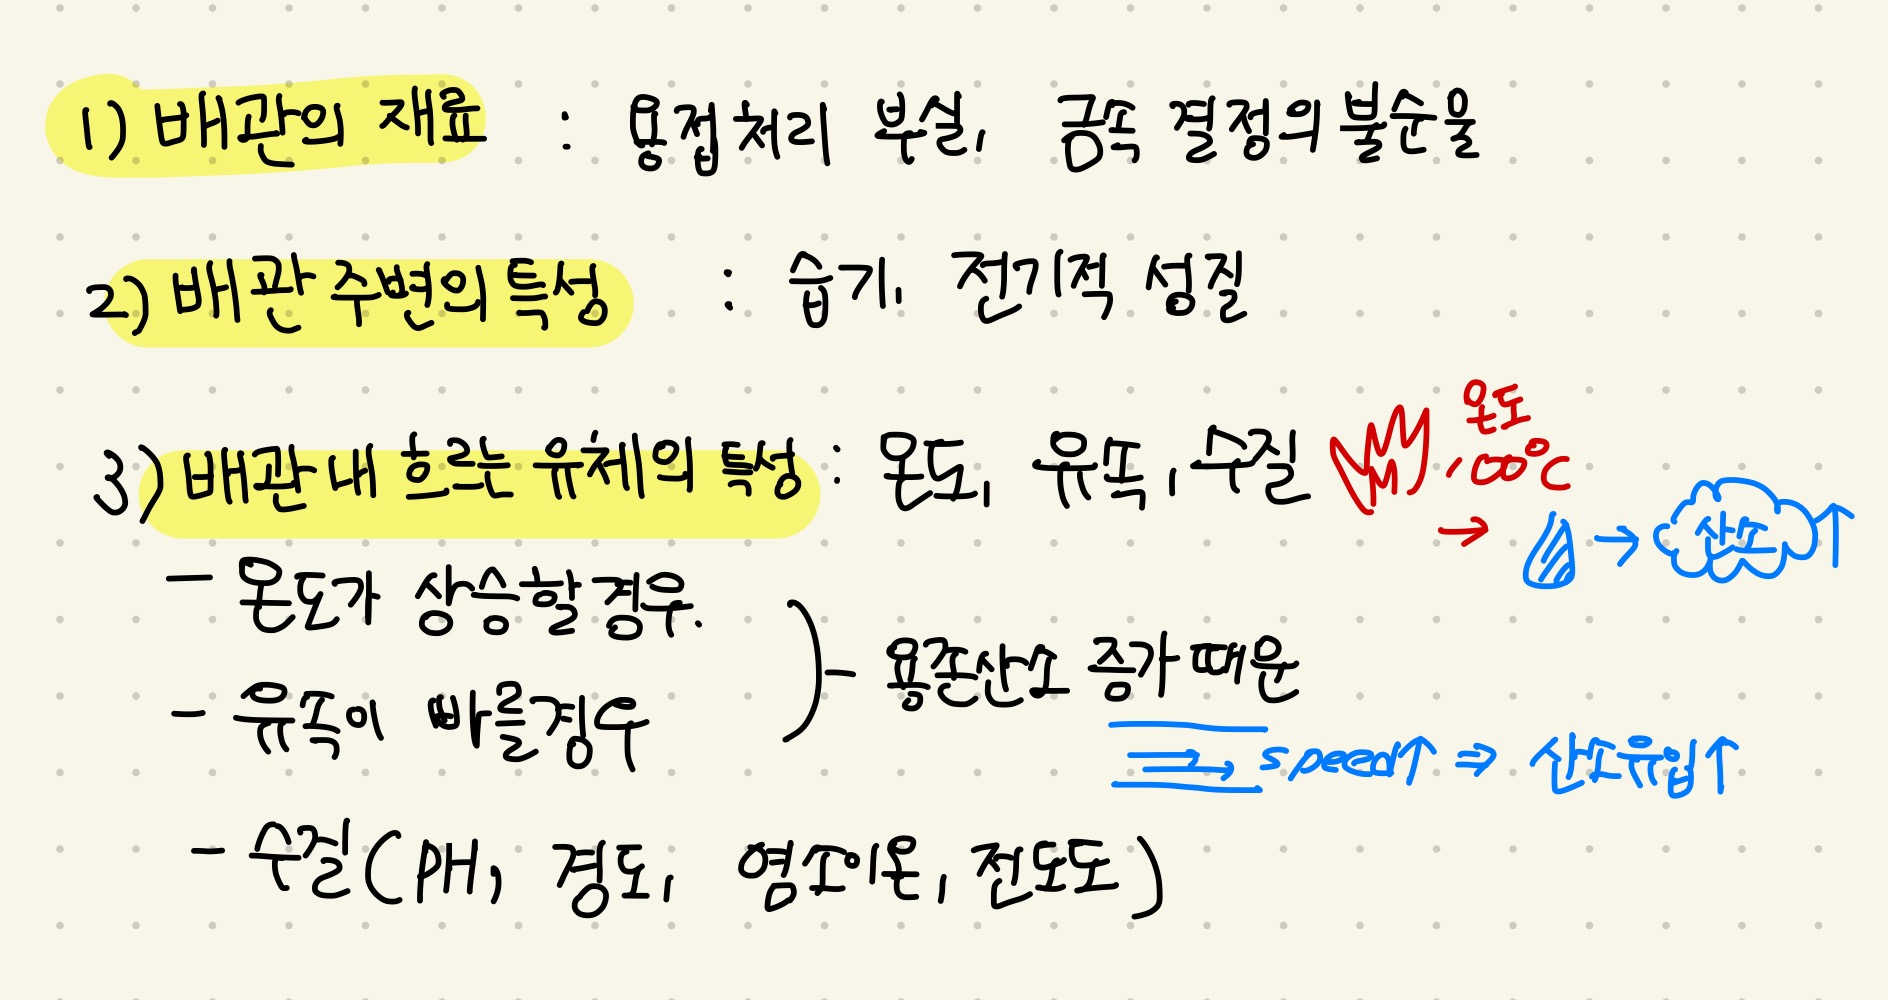 1) 배관의 재료 : 용접처리 부실, 금속 결정의 불순물
2) 배관 주변의 특성 : 습기, 전기적 성질
3) 배관 내 흐르는 유체의 특성 : 온도, 유속, 수질
온도
100°C
→ → 산소 ↑
- 온도가 상승할 경우.
- 용존산소 증가 때문
- 유속이 빠를경우
speed↑ ⇒ 산소유입↑
- 수질(pH, 경도, 염소이온, 전도도)